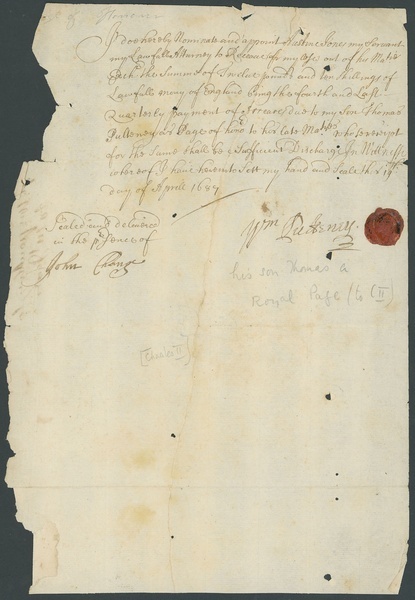 I doe hereby Nominate and appoint Jones my Servant
my Lawfull Attorney to Receive for my use out of his Maties
the Summe of Twelve pounds and ten shillings of
Lawfull mony of England being the fourth and Last
Quarterly payment of due to my Son Thomas
Pulteney as Page of hono to her late Matie whose receipt
for the Same shall be a Sufficient Discharge In Wittness
whereof I have hereunto Sett my hand and Seale this
day of Aprill 1687
Sealed and delivered
in the psence of
John Change
Wm Pulteney
his son Thomas a
Royal Page (to CII)